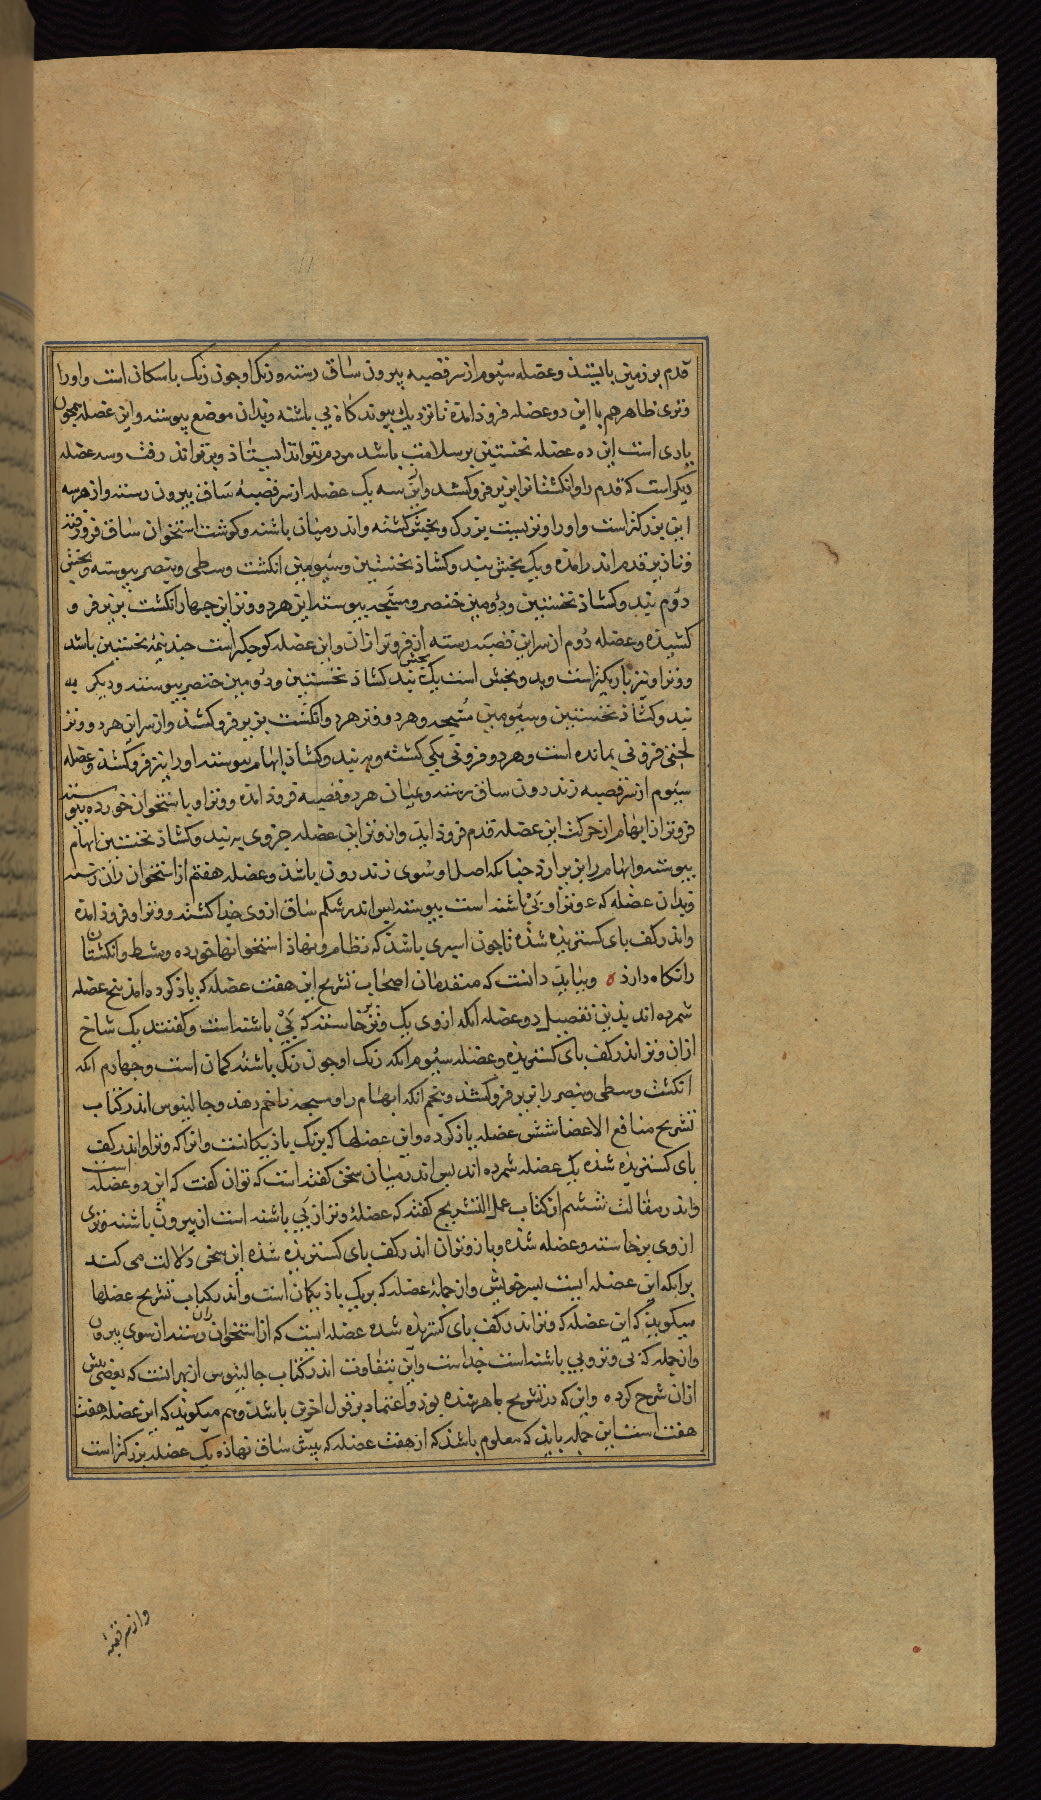 قدم بر زمین بایستد و عضله سیوم از سر قصبه بیرون ساق رسته و رنک او جون رنک باسکان است و اورا
وتری ظاهر هم با این دو عضله فروذ آمده تا نزدیك بیوندکاه بی باشنه و بذان موضع بیوسته و این عضله همجون
یاری است این ده عضله نخستین بر سلامت باشد مردم بتواند ایستاذ و بر تواند رفت و سه عضله
دیکر است که قدم را و انکشتانرا زیر فروکشد و این سه یک عضله از سر قصبهٔ ساق بیرون رسته و از هرسه
این بزرکتر است و اورا وتر بست بزرک و بخش کشته و اندر میان باشنه و کوشت استخوان ساق فرورفته
و تا زیر قدم اندر آمده و یک بخش ببند وکشاذ نخستین و سیومین انکشت وسطی و بنصر بیوسته و بخش
دوم ببند وکشاذ نخستین و دومین خنصر و مسبحه بیوسته این هر دو وتر این جهار انکشت بزیر فرو
کشیده و عضله دوم از سر این قصبه رسته از فروتر ازان و این عضله کوجکتر است جند نیمهٔ نخستین باشد
و وتر او نیز باریکتر است و بدو بخش است یک بخش ببند کشاذ نخستین و دومین خنصر بیوسته و دیکر به
ببند وکشاذ نخستین و سیومین مسبحه و هر دو وتر هر دو انکشت بزیر فروکشد و از سر این هر دو وتر
لختی فزونی بمانده است و هر دو فزونی یکی کشته و به ببند وکشاذ ابهام بیوسته اورا بزیر فروکشد و عضله
سیوم از سر قصبه زند درون ساق رسته و بمیان هر دو قصبه فروذ آمده و وتر او باستخوان خورده بیوسته
فروتر از ابهام از حرکت این عضله قدم فروذ آید و از وتر این عضله جزوی به ببند وکشاذ نخستین ابهام
بیوسته و ابهام را بزیر آرد جنانکه اصل او سوی زند درون باشد و عضله هفتم از استخوان ران رسته
و بدان عضله که وتر او بی باشنه است بیوسته بس اندر شکم ساق ازوی جدا کشته و وتر او فروذ آمده
و اندر کف بای کسترذه شذه تا جون اسیری باشذ که نظام و نهاذ استخوانها خورده و مشط و انکشتان
را نکاه دارذ ه و بباید دانست که متقدمان اصحاب تشریح این هفت عضله که یاذ کرده آمذ پنج عضله
شمرده اند بذین تفصیل دو عضله انکه ازوی یک وتر برخاسته که بی باشنه است و کفتند یک شاخ
ازان وتر اندر کف بای کسترذه و عضله سیوم انکه رنک او جون رنک باشنه کمان است و جهارم انکه
انکشت وسطی و بنصر را بزیر فروکشد و پنجم انکه ابهام را و مسبحه را خم دهد و جالینوس اندر کتاب
تشریح منافع الاعضا شش عضله یاذ کرده و این عضلها که بزیک یاذ بیکانست و انراکه وتر او اندر کف
بای کسترذه شذه یک عضله شمرده اند بس اندر میان سخن کفته است که توان کفت که این دو عضله است
و اندر مقالت ششم از کتاب عمل التشریح کفته که عضلهٔ وتر از بی باشنه است از بیرون باشنه وتری
ازوی برخاسته و عضله شذه و باز وتران اندر کف بای کسترذه شذه این سخن دلالت می کند
برانکه این عضله ایست بسرخویش و از جملهٔ عضله که بریک یاذ بیکان است و اندر کتاب تشریح عضلها
میکوید که این عضله که وتر اندر کف بای کسترذه شده عضله ایست که از استخوان ران رسته از سوی بیرون
و ازجمله که بی وتر و بی باشنه است جداست و این تفاوت اندر کتاب جالینوس از بهر انست که بعضی بیش
ازان شرح کرده و این که در تشریح ماهر شده بوذ و اعتماد بر قول آخرین باشد و هم میکوید که این عضله هفت
هفت است این جمله باید که معلوم باشذ که از هفت عضله که بیش ساق نهاذه یک عضله بزرکتر است
و از سر قصبهٔ